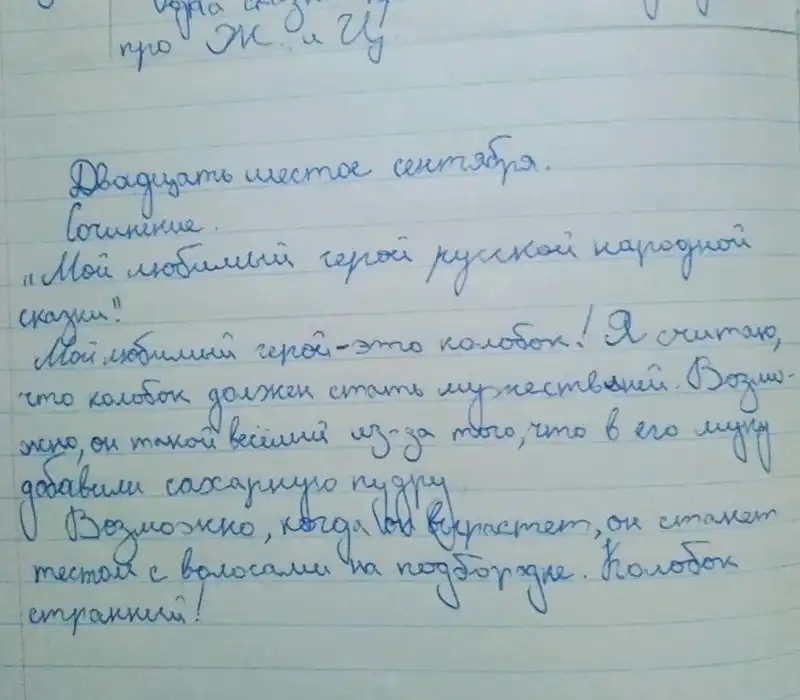 одна сказка
про Ж и Ц
Двадцать шестое сентября.
Сочинение.
„Мой любимый герой русской народной
сказки."
Мой любимый герой-это колобок! Я считаю,
что колобок должен стать мужествяней. Возмо-
жно, он такой весёлый из-за того, что в его муку
добавили сахарную пудру
Возможно, когда он вырастет, он станет
тестом с волосами на подбородке. Колобок
странный!